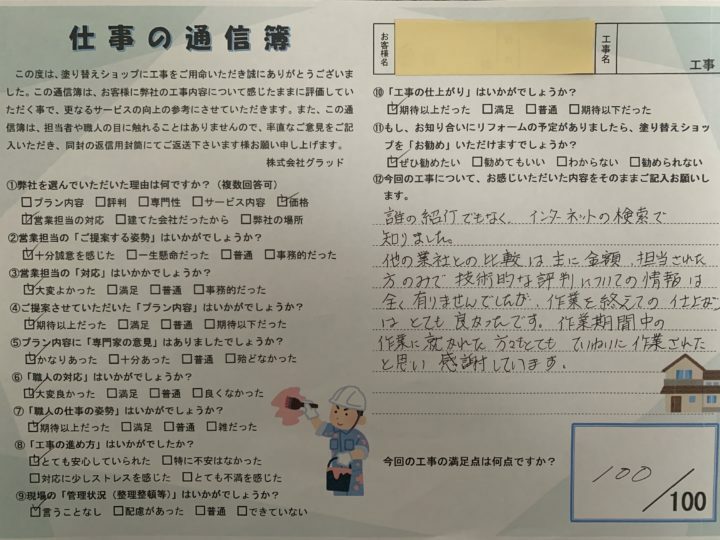 仕事の通信簿
この度は、塗り替えショップに工事をご用命いただき誠にありがとうございま
した。この通信簿は、お客様に弊社の工事内容について感じたままに評価してい
ただく事で、更なるサービスの向上の参考にさせていただきます。また、この通
信簿は、担当者や職人の目に触れることはありませんので、率直なご意見をご記
入いただき、同封の返信用封筒にてご返送下さいます様お願い申し上げます。
株式会社グラッド
①弊社を選んでいただいた理由は何ですか？（複数回答可）
□プラン内容 □評判 □専門性 □サービス内容 ☑価格
☑営業担当の対応 □建てた会社だったから □弊社の場所
②営業担当の「ご提案する姿勢」はいかがでしょうか？
☑十分誠意を感じた □一生懸命だった □普通 □事務的だった
③営業担当の「対応」はいかかでしょうか？
☑大変よかった □満足 □普通 □事務的だった
④ご提案させていただいた「プラン内容」はいかがでしょうか？
☑期待以上だった □満足 □普通 □期待以下だった
⑤プラン内容に「専門家の意見」はありましたでしょうか？
☑かなりあった □十分あった □普通 □殆どなかった
⑥「職人の対応」はいかがでしょうか？
☑大変良かった □満足 □普通 □良くなかった
⑦「職人の仕事の姿勢」はいかがでしょうか？
☑期待以上だった □満足 □普通 □雑だった
⑧「工事の進め方」はいかがでしたか？
☑とても安心していられた □特に不安はなかった
□対応に少しストレスを感じた □とても不満を感じた
⑨現場の「管理状況（整理整頓等）」はいかがでしょうか？
☑言うことなし □配慮があった □普通 □できていない
お客様名
工事名
工事
⑩「工事の仕上がり」はいかがでしょうか？
☑期待以上だった □満足 □普通 □期待以下だった
⑪もし、お知り合いにリフォームの予定がありましたら、塗り替えショッ
プを「お勧め」いただけますでしょうか？
☑ぜひ勧めたい □勧めてもいい □わからない □勧められない
⑫今回の工事について、お感じいただいた内容をそのままご記入お願いし
ます。
誰の紹介でもなく、インターネットの検索で
知りました。
他の業社との比較は主に金額、担当された
方のみで技術的な評判についての情報は
全く有りませんでしたが、作業を終えての仕上がり
はとても良かったです。作業期間中の
作業に就かれた方々もとても ていねいに作業された
と思い 感謝しています。
今回の工事の満足点は何点ですか？
100/100